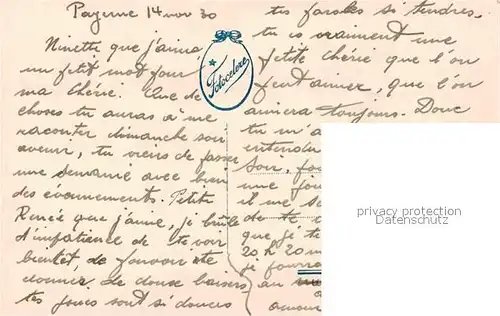 Payerne 14 nov 30
Ninette que j'aime
un petit mot pour
ma Chérie. Que de
choses tu auras à me
raconter dimanche soir
avenir, tu viens de passer
une semaine avec bien
des événements. Petite
Renée que j'aime, je brûle
d'impatience de te voir
bientôt, de pouvoir te
donner de doux baisers
tes joues sont si douces
Fotocelere
tes paroles si tendres
tu es vraiment une
petite Chérie que l'on
peut aimer, que l'on
aimera toujours. Donc
tu m'a
entendu
soir, 
une 
il me se
de te
que je t
20 h 20 m
je pourra
au
amour
privacy protection
Datenschutz